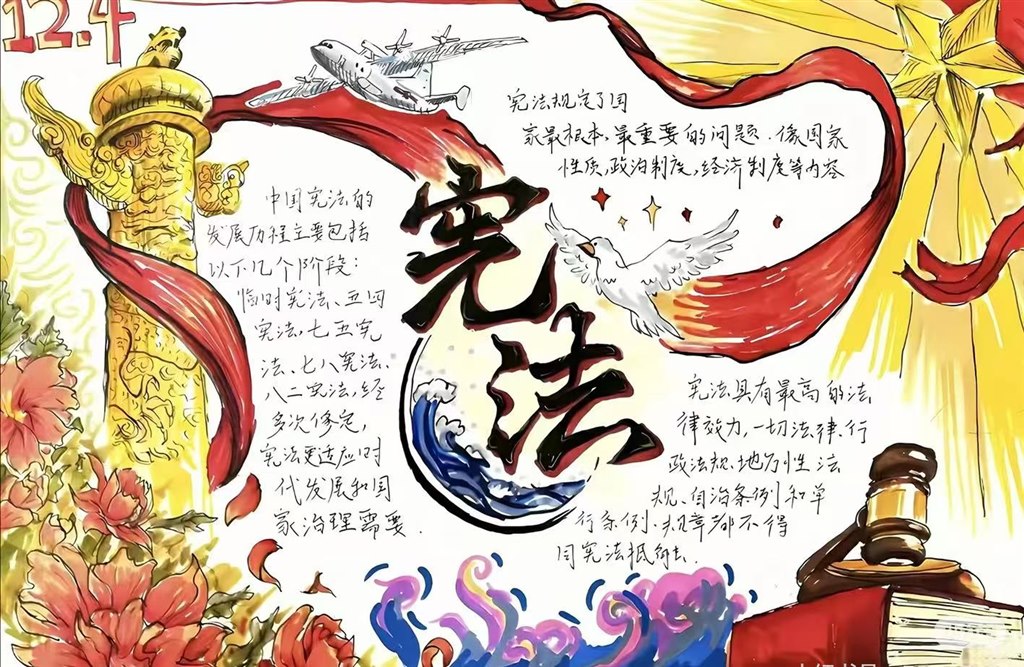 12.4
宪法规定了国
家最根本、最重要的问题、像国家
性质,政治制度,经济制度等内容
宪
法
中国宪法的
发展历程主要包括
以下几个阶段:
临时宪法、五四
宪法,七五宪
法、七八宪法、
八二宪法,经
多次修定,
宪法更适应时
代发展和国
家治理需要.
宪法具有最高的法
律效力,一切法律、行
政法规、地方性法
规、自治条例和单
行条例、规章都不得
同宪法抵触.